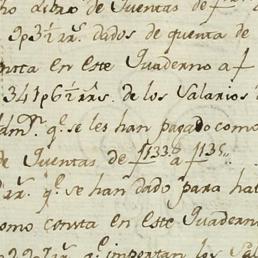 ho Libro de Cuentas de f
9p3½rrs. dados de quenta de
nsta en este Quaderno a f
341p6½rrs. de los Salarios
Adm.n q.e se les han pagado como
de Cuentas de f133,, a f135,,
rr.s q.e se han dado para ha
omo consta en este Quadern
rr.s q.e importan los Sal